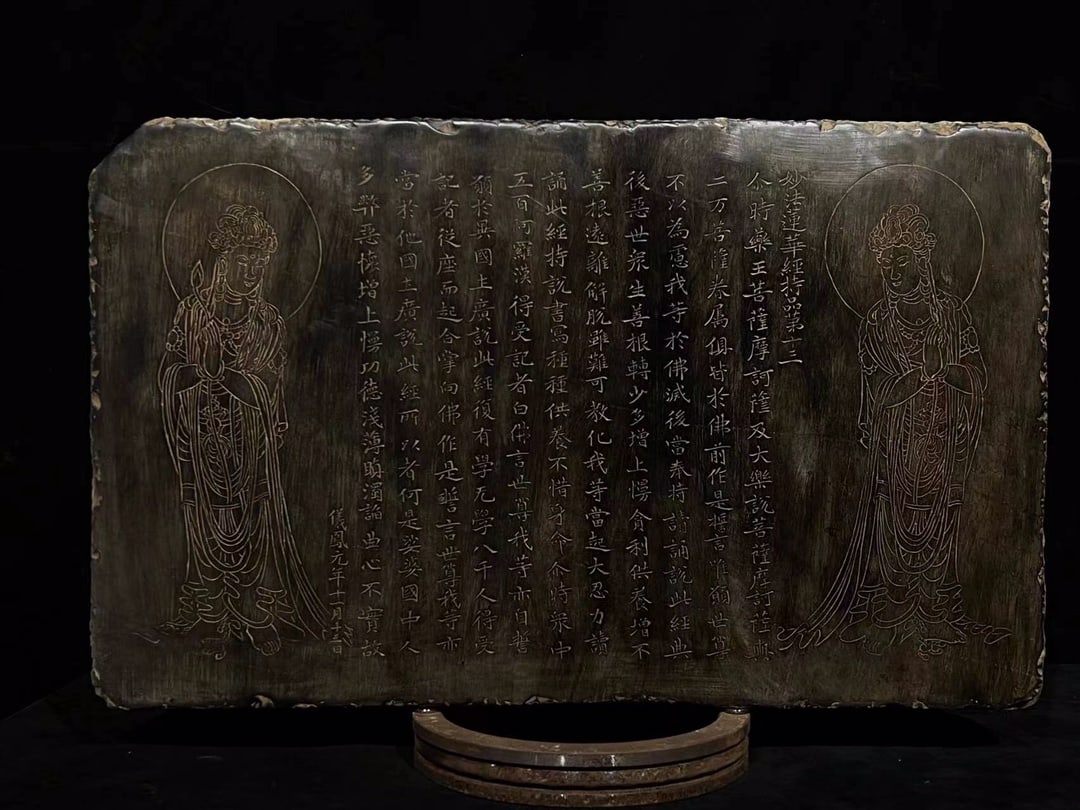 妙法蓮華經持品第十三
尒時藥王菩薩摩訶薩及大樂說菩薩摩訶薩與
二万菩薩眷属俱皆於佛前作是誓言唯願世尊
不以為慮我等於佛滅後當奉持讀誦說此經典
後惡世衆生善根轉少多增上慢貪利供養增不
善根遠離解脫雖難可教化我等當起大忍力讀
誦此經持說書寫種種供養不惜身命尒時衆中
五百阿羅漢得受記者白佛言世尊我等亦自誓
願於異國土廣說此經復有學无學八千人得受
記者從座而起合掌向佛作是誓言世尊我等亦
當於他国土廣說此經所以者何是娑婆國中人
多弊惡懷增上慢功德淺薄瞋濁諂曲心不實故
儀鳳元年十一月日